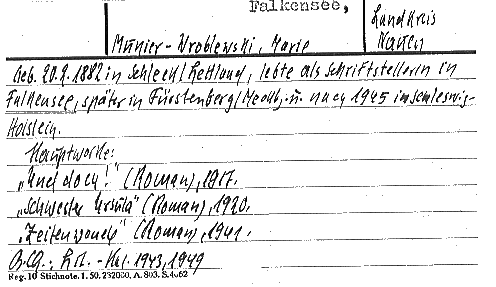 Falkensee,
Landkreis
Munier-Wroblewski, Marie
Nauen
Geb. 20.2.1882 in Schleck/Lettland, lebte als Schriftstellerin in
Falkensee, später in Fürstenberg/Mecklbg. u. nach 1945 in Schleswig-
Holstein.
Hauptwerke:
„Und doch!" (Roman), 1917.
„Schwester Ursula" (Roman), 1920.
„Zeitenwende" (Roman), 1941.
1943, 1949
Reg. 10 Stichnote. 1. 50. 232000. A. 803. S. 4062